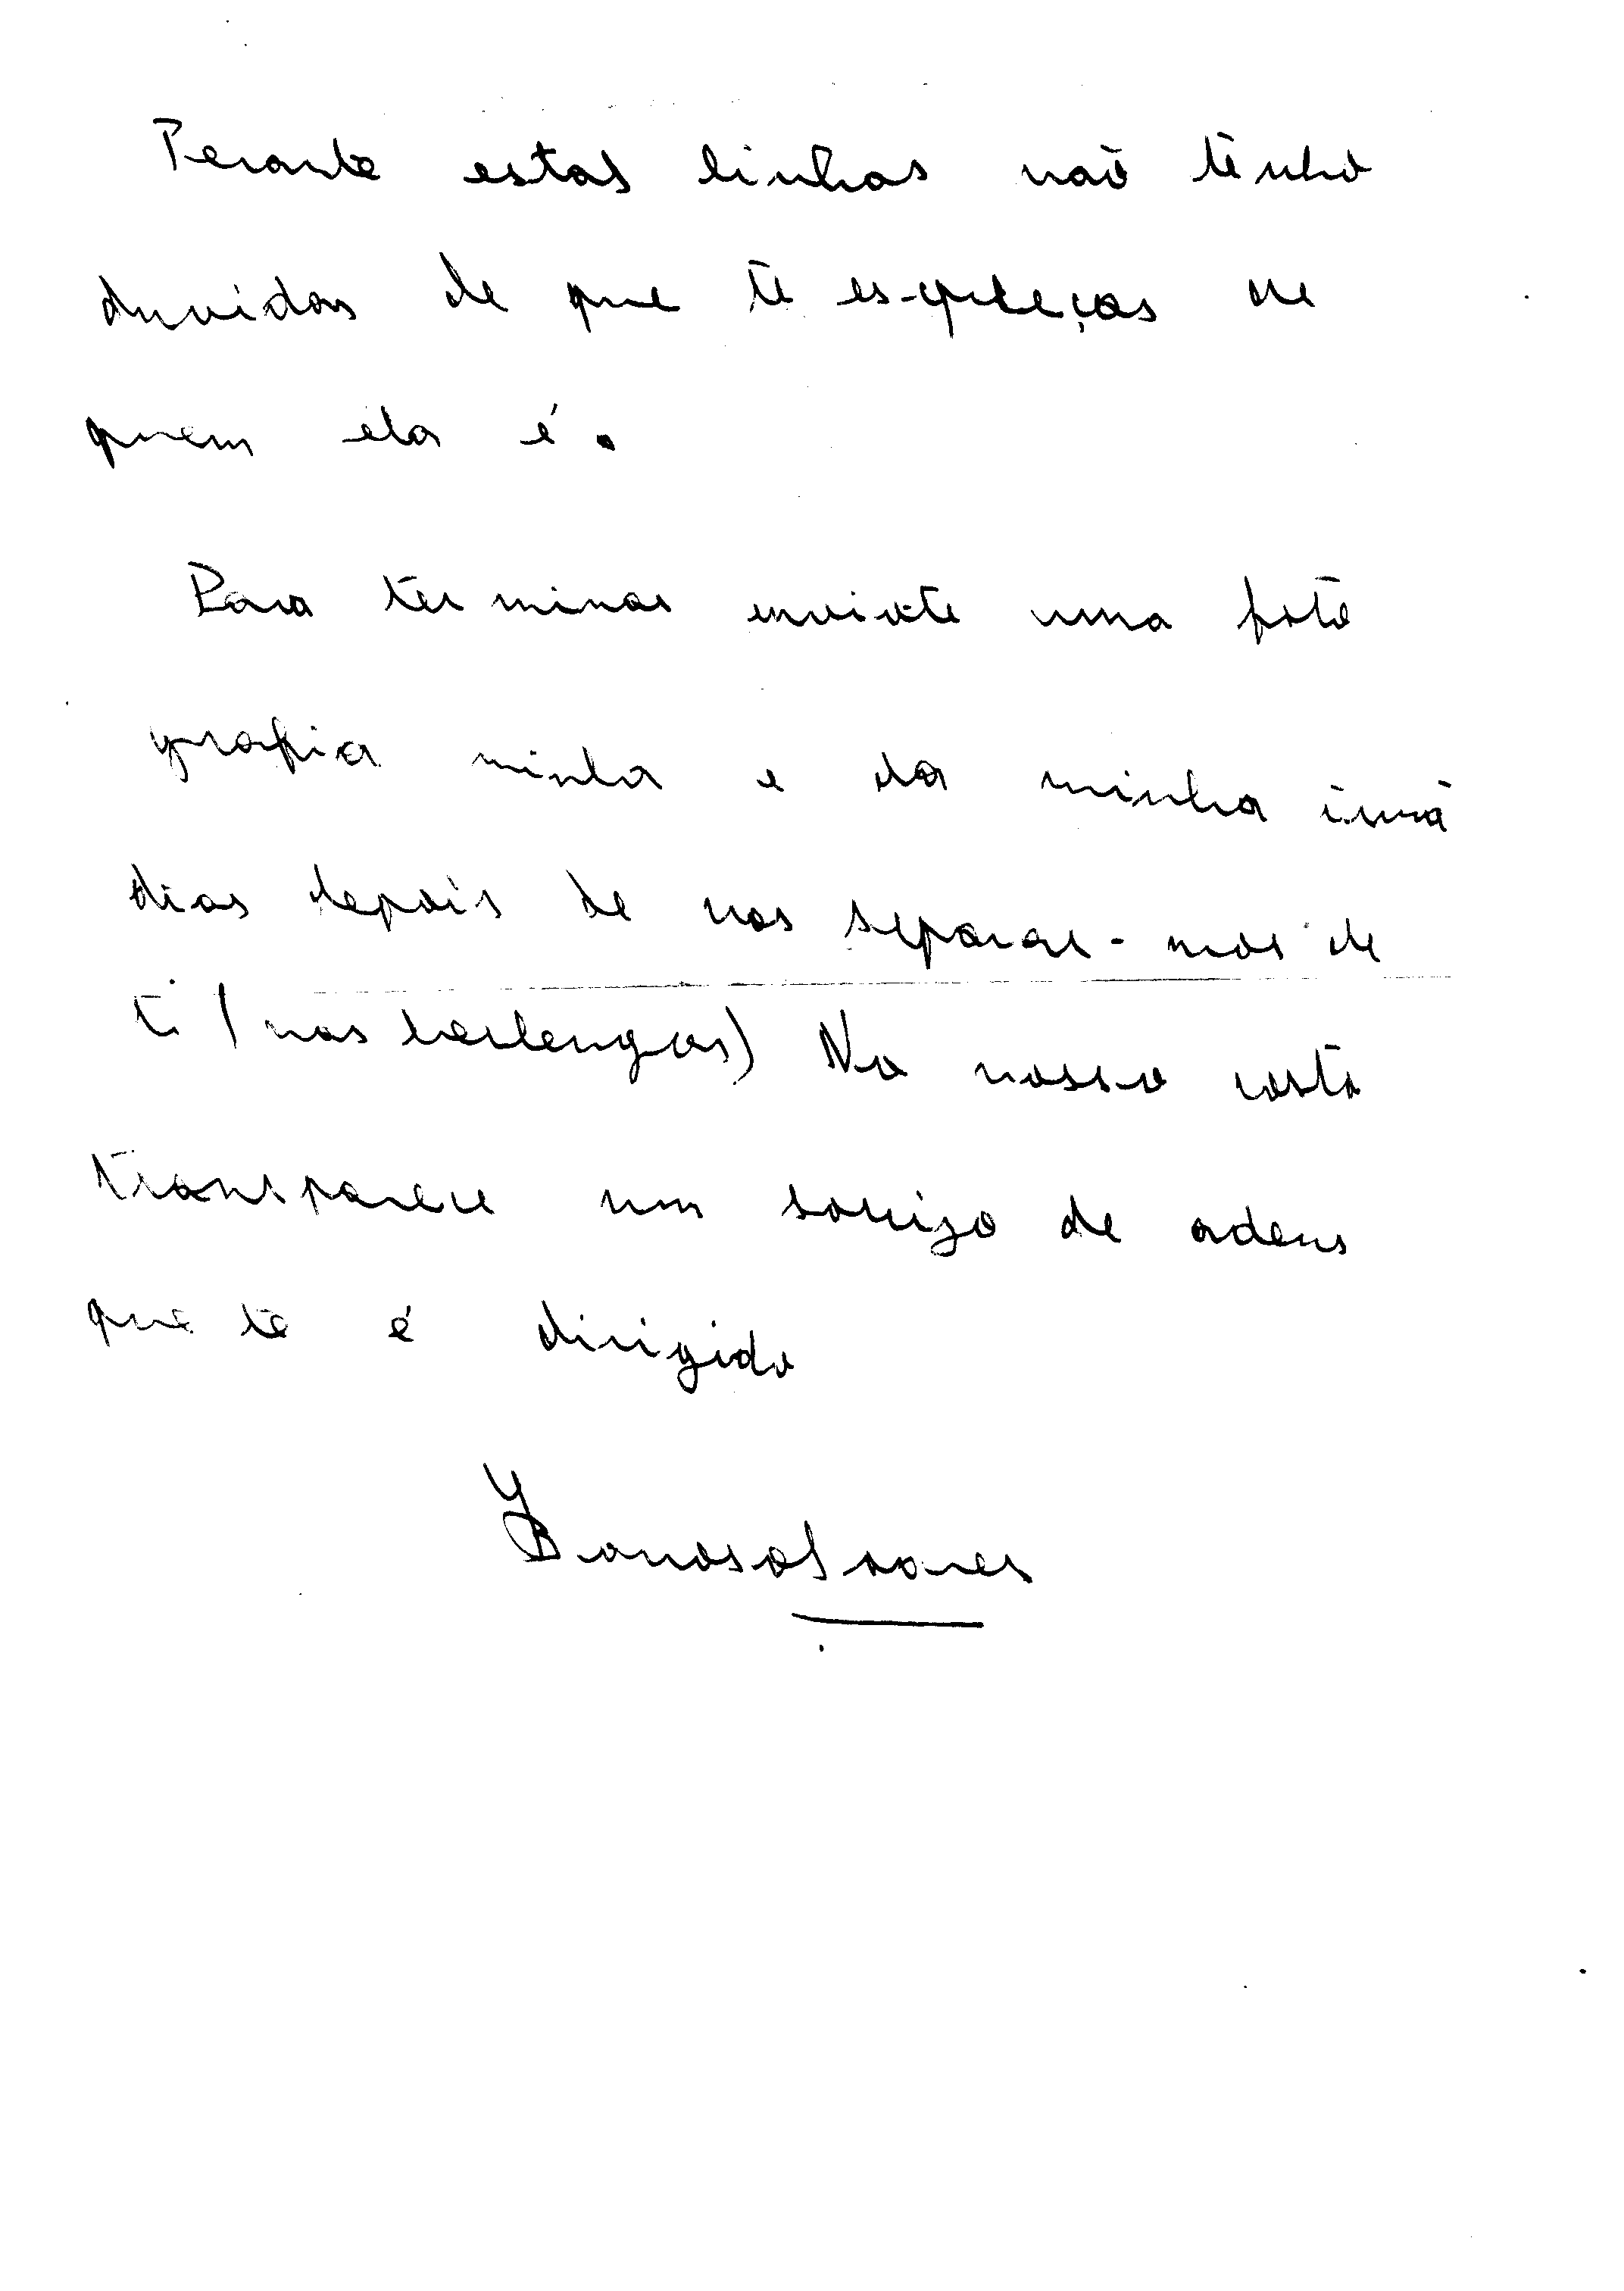 Perante estas linhas não tenho
duvidas de que te es-queças de
quem ela é.
Para terminar envio-te uma foto
grafia minha e da minha irmã
dias depois de nos separar-mos de
ti (nas berlengas) No nosso rosto
transparece um sorriso de adeus
que te é dirigido